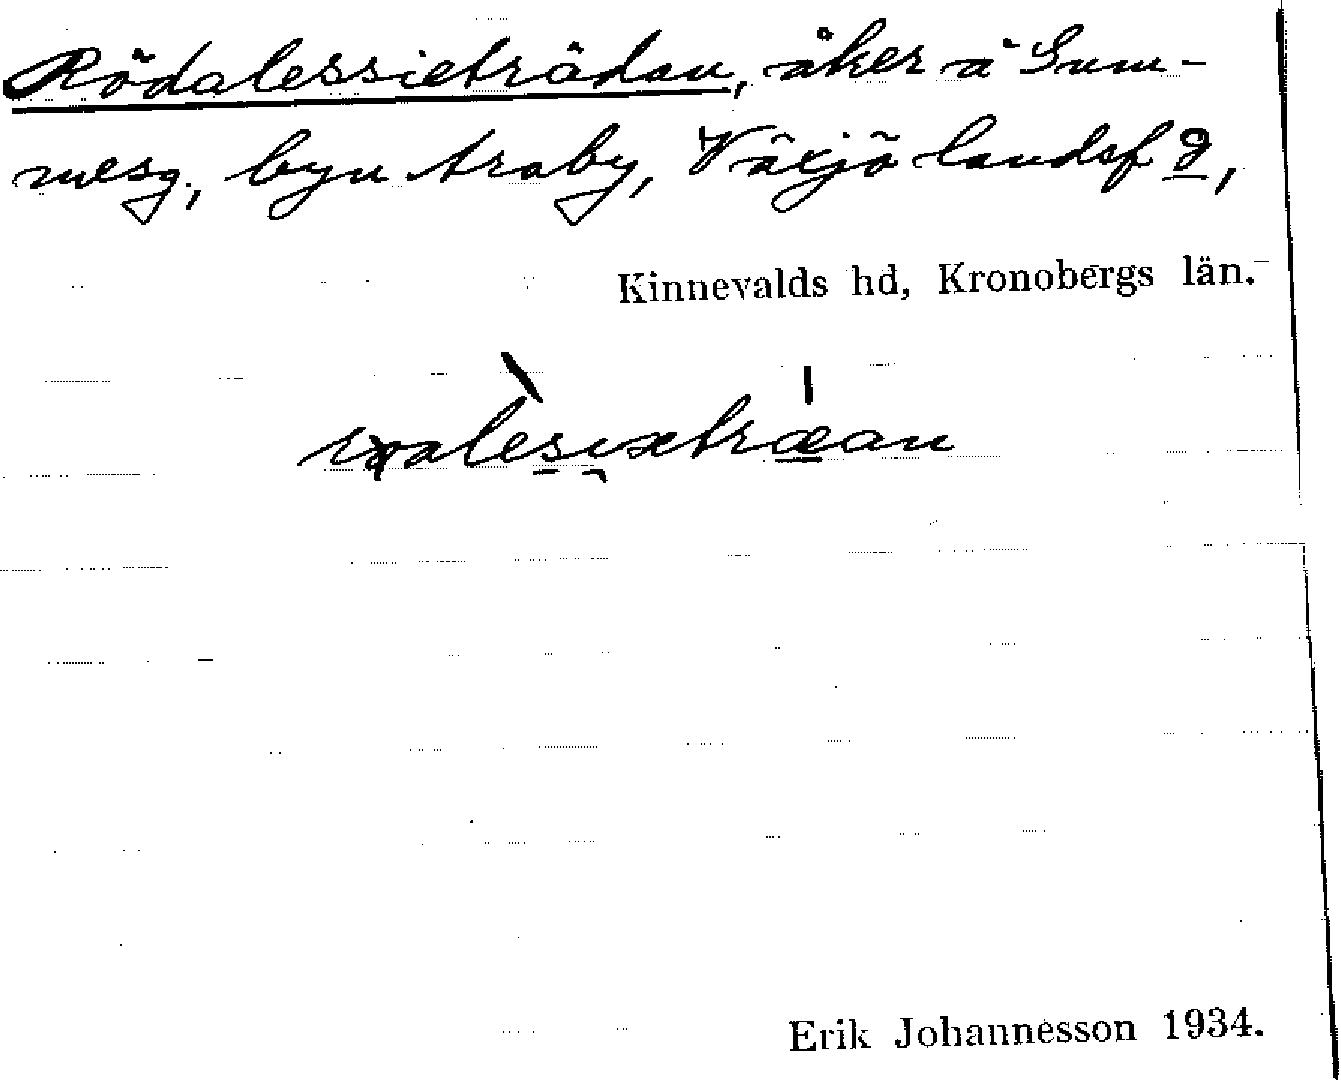 Rödalessieträdan, åker å Sum-
mesg, byn Araby, Växjö landsf 9,
Kinnevalds hd, Kronobergs län.
Erik Johannesson 1934.